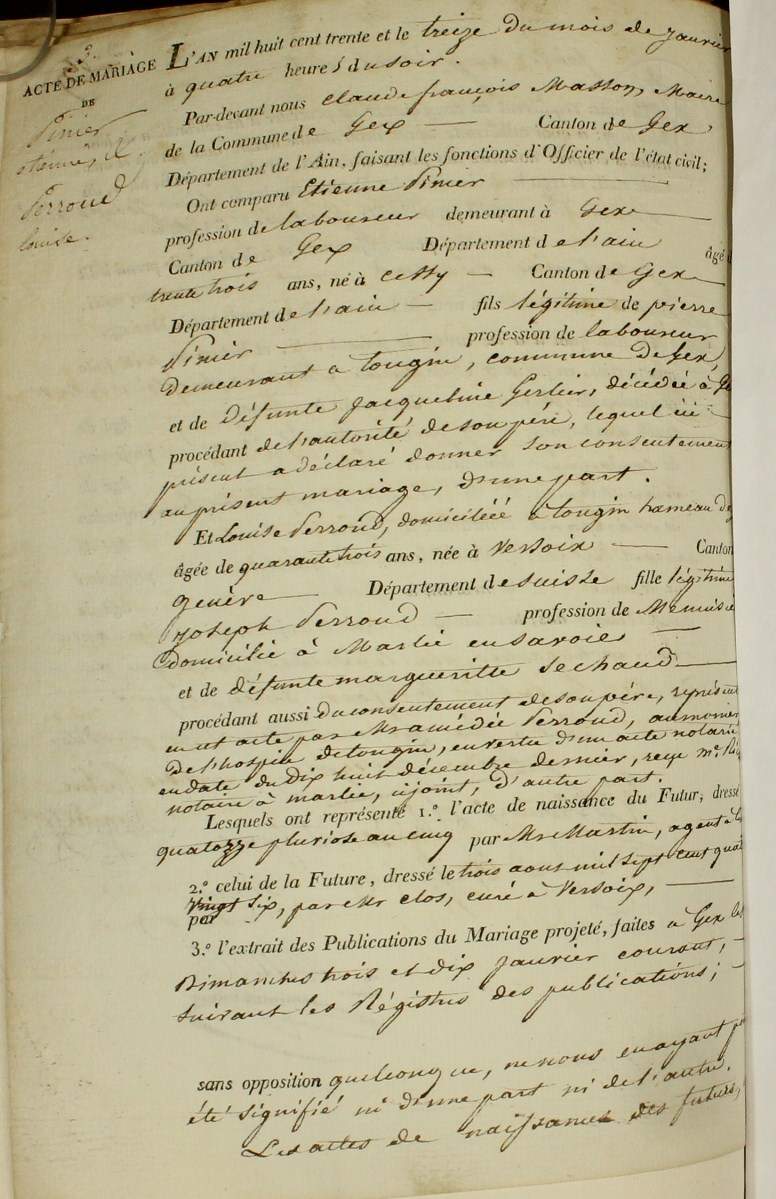 3.
ACTE DE MARIAGE
DE
Pinier
etienne, &
Perroud
louise.
L'AN mil huit cent trente et le treize du mois de janvier
à quatre heures du soir.
Par-devant nous claude françois Masson, Maire
de la Commune de Gex — Canton de Gex,
Département de l'Ain, faisant les fonctions d'Officier de l'état civil;
Ont comparu Etienne Pinier
profession de laboureur demeurant à Gex
Canton de Gex Département de l'ain âgé d
trente trois ans, né à cessy — Canton de Gex
Département de l'ain — fils légitime de pierre
Pinier — profession de laboureur
demeurant a tougin, commune de Gex,
et de défunte jacqueline Gerlier, décédée à Ge
procédant de l'autorité de son péré, lequel ici
présent a déclaré donner son consentement
au présent mariage, d'une part.
Et Louise Perroud, domiciliéé à tougin hameau de
âgée de quarante trois ans, née à Versoix — Canton
genève Département de suisse fille légitime
joseph Perroud — profession de Menuisie
domicilié à Marlié en savoie
et de défunte margueritte Sechaud
procédant aussi du consentement de son pére, représent
en cet acte par Mr amédée Perroud, aumonier
de l'hospice de tougin, en vertu d'un acte notarié
en date du dix huit décembre dernier, reçu me.
notaire à marlié, cijoint, d'autre part.
Lesquels ont représenté 1.º l'acte de naissance du Futur, dressé
quatozze pluviose an cinq par Mr Martin, agent à
2.º celui de la Future, dressé le trois aout mil sept cent quat
vingt six, par Mr clos, curé à Versoix,
par
3.º l'extrait des Publications du Mariage projeté, faites à Gex les
Dimanches trois et dix janvier courant,
suivant les Régistres des publications;
sans opposition quelconque, ne nous en ayant p
été signifié ni d'une part ni de l'autre.
Les actes de naissance des futurs,